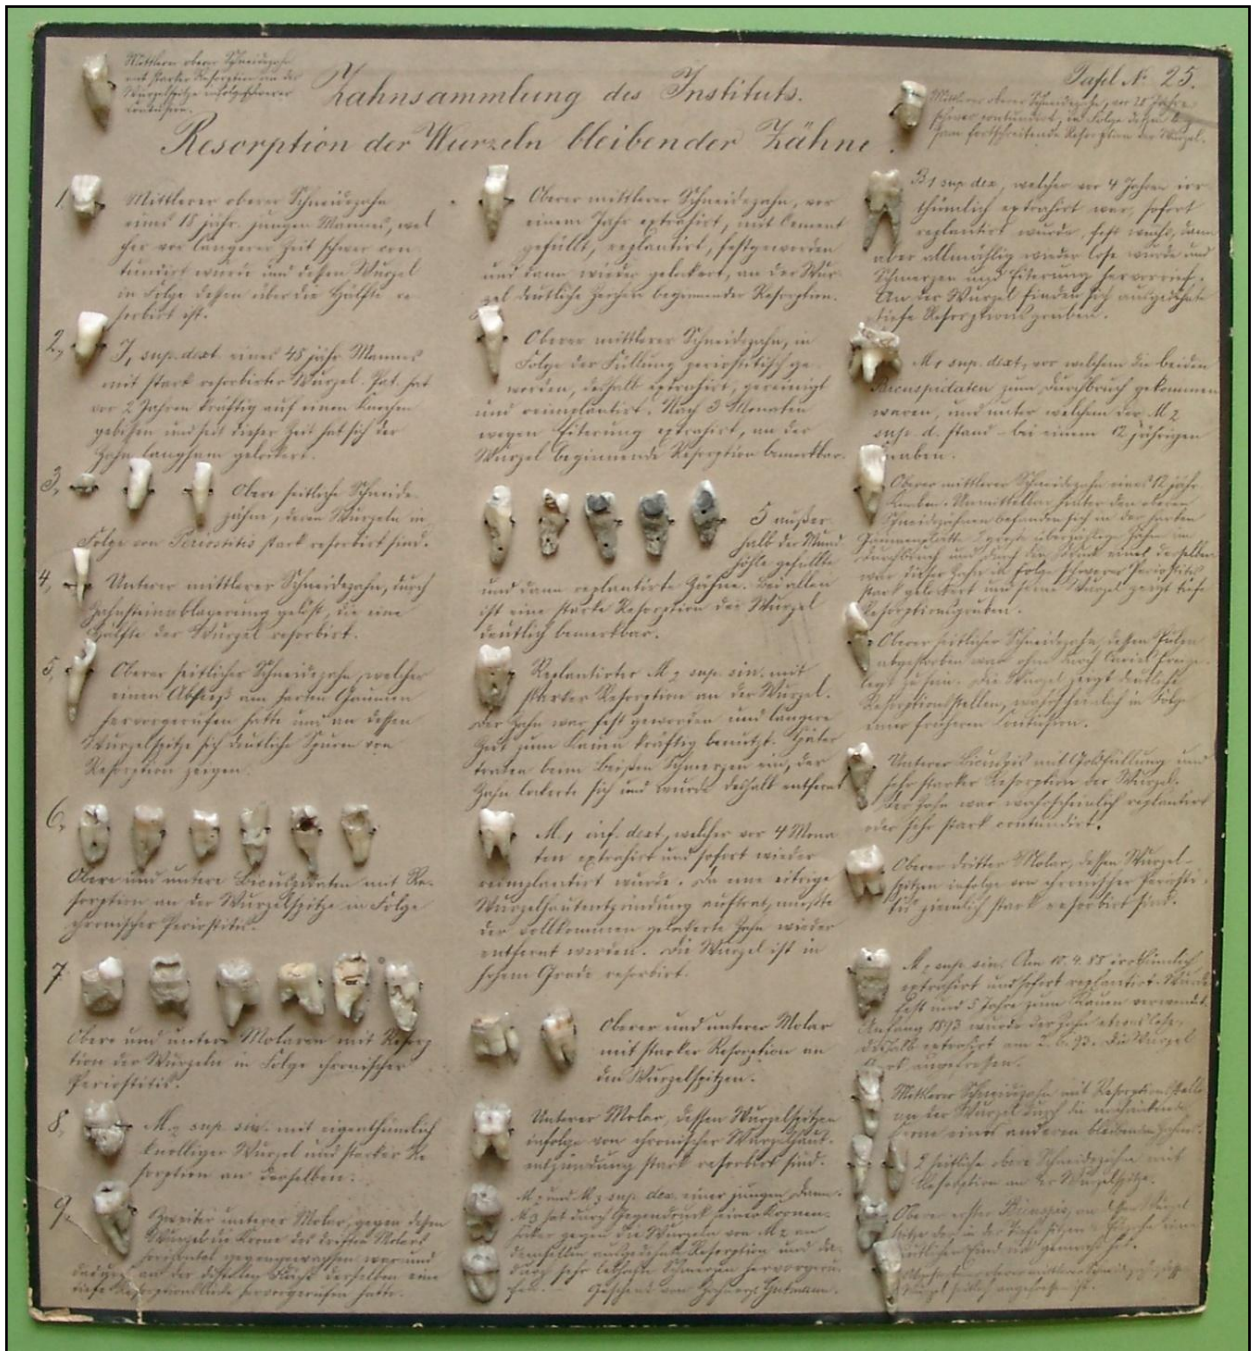 Mittlerer oberer Schneidezahn
mit starker Resorption an der
Wurzelspitze infolge schwerer
Contusion.
Zahnsammlung des Instituts.
Tafel № 25.
Resorption der Wurzeln bleibender Zähne.
Mittlerer oberer Schneidezahn, vor 20 Jahren
schwer contundirt, in Folge dessen
fortschreitende Resorption der Wurzel.
1,
Mittlerer oberer Schneidezahn
eines 18 jähr. jungen Mannes, wel
cher vor längerer Zeit schwer con
tundirt wurde und dessen Wurzel
in Folge dessen über die Hälfte re
sorbirt ist.
2,
J, sup. dext. eines 45 jähr. Mannes
mit stark resorbirter Wurzel. Pat. hat
vor 2 Jahren kräftig auf einen Knochen
gebissen und seit dieser Zeit hat sich der
Zahn langsam gelockert.
3,
Obere seitliche Schneide
zähne, deren Wurzeln in
Folge von Periostitis stark resorbirt sind.
4,
Unterer mittlerer Schneidezahn, durch
Zahnsteinablagerung gelöst, die eine
Hälfte der Wurzel resorbirt.
5,
Oberer seitlicher Schneidezahn, welcher
einen Abszeß am harten Gaumen
hervorgerufen hatte und an dessen
Wurzelspitze sich deutliche Spuren von
Resorption zeigen.
6,
Obere und untere Bicuspidaten mit Re-
sorption an der Wurzelspitze in Folge
chronischer Periostitis.
7
Obere und untere Molaren mit Resorp
tion der Wurzeln in Folge chronischer
Periostitis.
8,
M. sup. sin. mit eigenthümlich
knolliger Wurzel und starker Re
sorption an derselben.
9,
Zweiter unterer Molar, gegen dessen
Wurzel die Krone des dritten Molars
horizontal gegengewachsen war und
dadurch an der distalen Fläche derselben eine
tiefe Resorptions hervorgerufen hatte.
Oberer mittlerer Schneidezahn, vor
einem Jahr extrahirt, mit Cement
gefüllt, replantirt, festgeworden
und dann wieder gelockert, an der Wur-
zel deutliche Zeichen beginnender Resorption.
Oberer mittlerer Schneidezahn, in
Folge der Füllung periostitisch ge-
worden, deshalb extrahirt, gereinigt
und reimplantirt. Nach 3 Monaten
wegen Eiterung extrahirt, an der
Wurzel beginnende Resorption bemerkbar.
5 außer
halb der Mund
höhle gefüllte
und dann replantirte Zähne. Bei allen
ist eine starke Resorption der Wurzel
deutlich bemerkbar.
Replantirter M2 sup. sin. mit
starker Resorption an der Wurzel.
Der Zahn war fest geworden und längere
Zeit zum Kauen kräftig benutzt. Später
traten beim Beißen Schmerzen ein, der
Zahn lockerte sich und wurde deshalb entfernt
M, inf. dext., welcher vor 4 Mona
ten extrahirt und sofort wieder
reimplantirt wurde. Da eine eitrige
Wurzelhautentzündung auftrat, mußte
der vollkommen gelockerte Zahn wieder
entfernt werden. Die Wurzel ist in
hohem Grade resorbirt.
Oberer und unterer Molar
mit starker Resorption an
den Wurzelspitzen.
Unterer Molar, dessen Wurzelspitzen
infolge von chronischer Wurzelhaut-
entzündung stark resorbirt sind.
M2 und M3 sup. dex. einer jungen Dame.
M3 hat durch Gegendruck seiner Kronen-
höcker gegen die Wurzeln von M2 an
denselben ausgedehnte Resorption und da-
durch sehr lebhafte Schmerzen hervorgeru-
fen. Geschenk von
B1 sup. dex., welcher vor 4 Jahren irr-
thümlich extrahirt war, sofort
replantirt wurde, fest wuchs, dann
aber allmählig wieder lose wurde und
Schmerzen und Eiterung hervorrief.
An der Wurzel finden sich ausgedehnte
tiefe Resorptionsgruben.
M1 sup. dext., vor welchem die beiden
Bicuspidaten zum Durchbruch gekommen
waren, und unter welchem der M2
sup. d. stand – bei einem 12 jährigen
Knaben.
Oberer mittlerer Schneidezahn eines 12 jähr.
Knaben. Unmittelbar hinter den oberen
Schneidezähnen befanden sich in der harten
Gaumenplatte 2 große überzählige Zähne im
Durchbruch und durch den Druck eines derselben
war dieser Zahn in Folge schwerer Periostitis
stark gelockert und seine Wurzel zeigt tiefe
Resorptionsgruben.
Oberer seitlicher Schneidezahn, dessen Pulpa
abgestorben war ohne durch Caries freige-
legt zu sein. Die Wurzel zeigt deutliche
Resorptionsstellen, wahrscheinlich in Folge
einer früheren Contusion.
Unterer Bicuspis mit Goldfüllung und
sehr starker Resorption der Wurzel.
Der Zahn war wahrscheinlich replantirt
oder sehr stark contundirt.
Oberer dritter Molar, dessen Wurzel-
spitzen infolge von chronischer Periosti-
tis ziemlich stark resorbirt sind.
M2 sup. sin. Am 10. 9. 88 irrthümlich
extrahirt und sofort replantirt. Wurde
fest und 5 Jahre zum Kauen verwendet.
Anfang 1893 wurde der Zahn etwas lose,
deshalb extrahirt am 2. 6. 93. Die Wurzel
stark angefressen.
Mittlerer Schneidezahn mit Resorptionsstelle
an der Wurzel durch die andrückende
Krone eines anderen bleibenden Zahnes.
2 seitliche obere Schneidezähne mit
Resorption an der Wurzelspitze.
Oberer erster Bicuspis, an